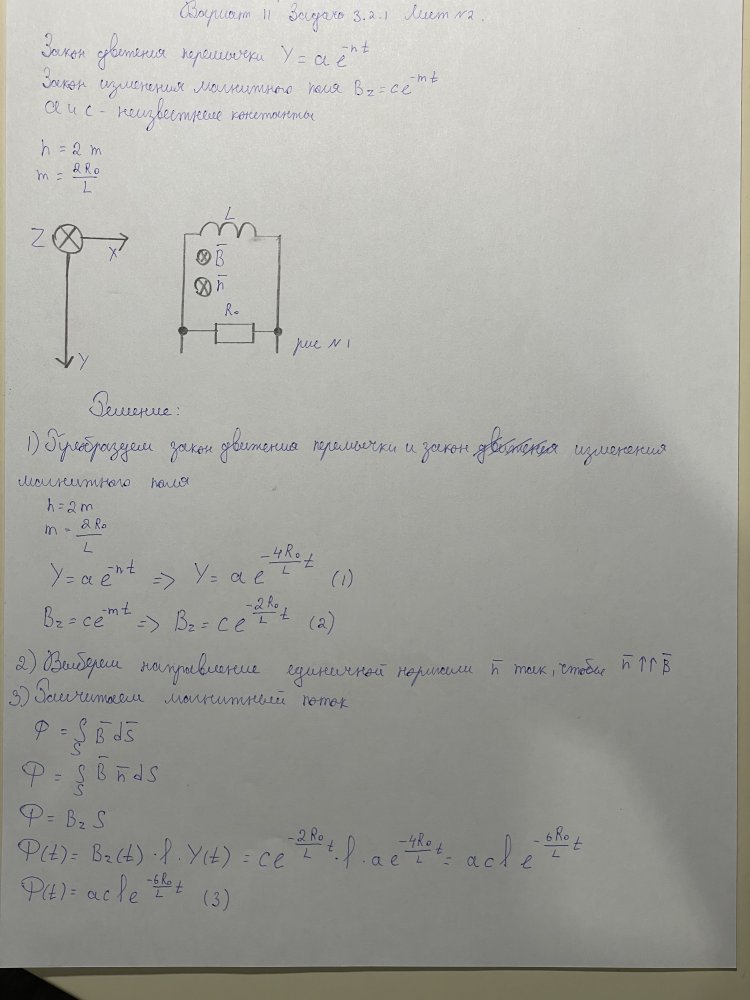 Вариант 11 Задача 3.2.1 Лист №2.
Закон движения перемычки Y = a e^{-nt}
Закон изменения магнитного поля B_z = ce^{-mt}
a и c - неизвестные константы
n = 2 m
m = \frac{2R_0}{L}
L
Z
X
\bar{B}
\bar{n}
R_0
рис №1
Y
Решение:
1) Преобразуем закон движения перемычки и закон движения изменения
магнитного поля
n = 2m
m = \frac{2R_0}{L}
Y = ae^{-nt} => Y = a e^{-\frac{4R_0}{L}t} (1)
B_z = ce^{-mt} => B_z = c e^{-\frac{2R_0}{L}t} (2)
2) Выберем направление единичной нормали \bar{n} так, чтобы \bar{n} ↑↑ \bar{B}
3) Рассчитаем магнитный поток
Φ = ∫_S \bar{B} d\bar{S}
Φ = ∫_S \bar{B} \bar{n} dS
Φ = B_z S
Φ(t) = B_z(t) · l · Y(t) = ce^{-\frac{2R_0}{L}t} · l · ae^{-\frac{4R_0}{L}t} = acl e^{-\frac{6R_0}{L}t}
Φ(t) = acl e^{-\frac{6R_0}{L}t} (3)